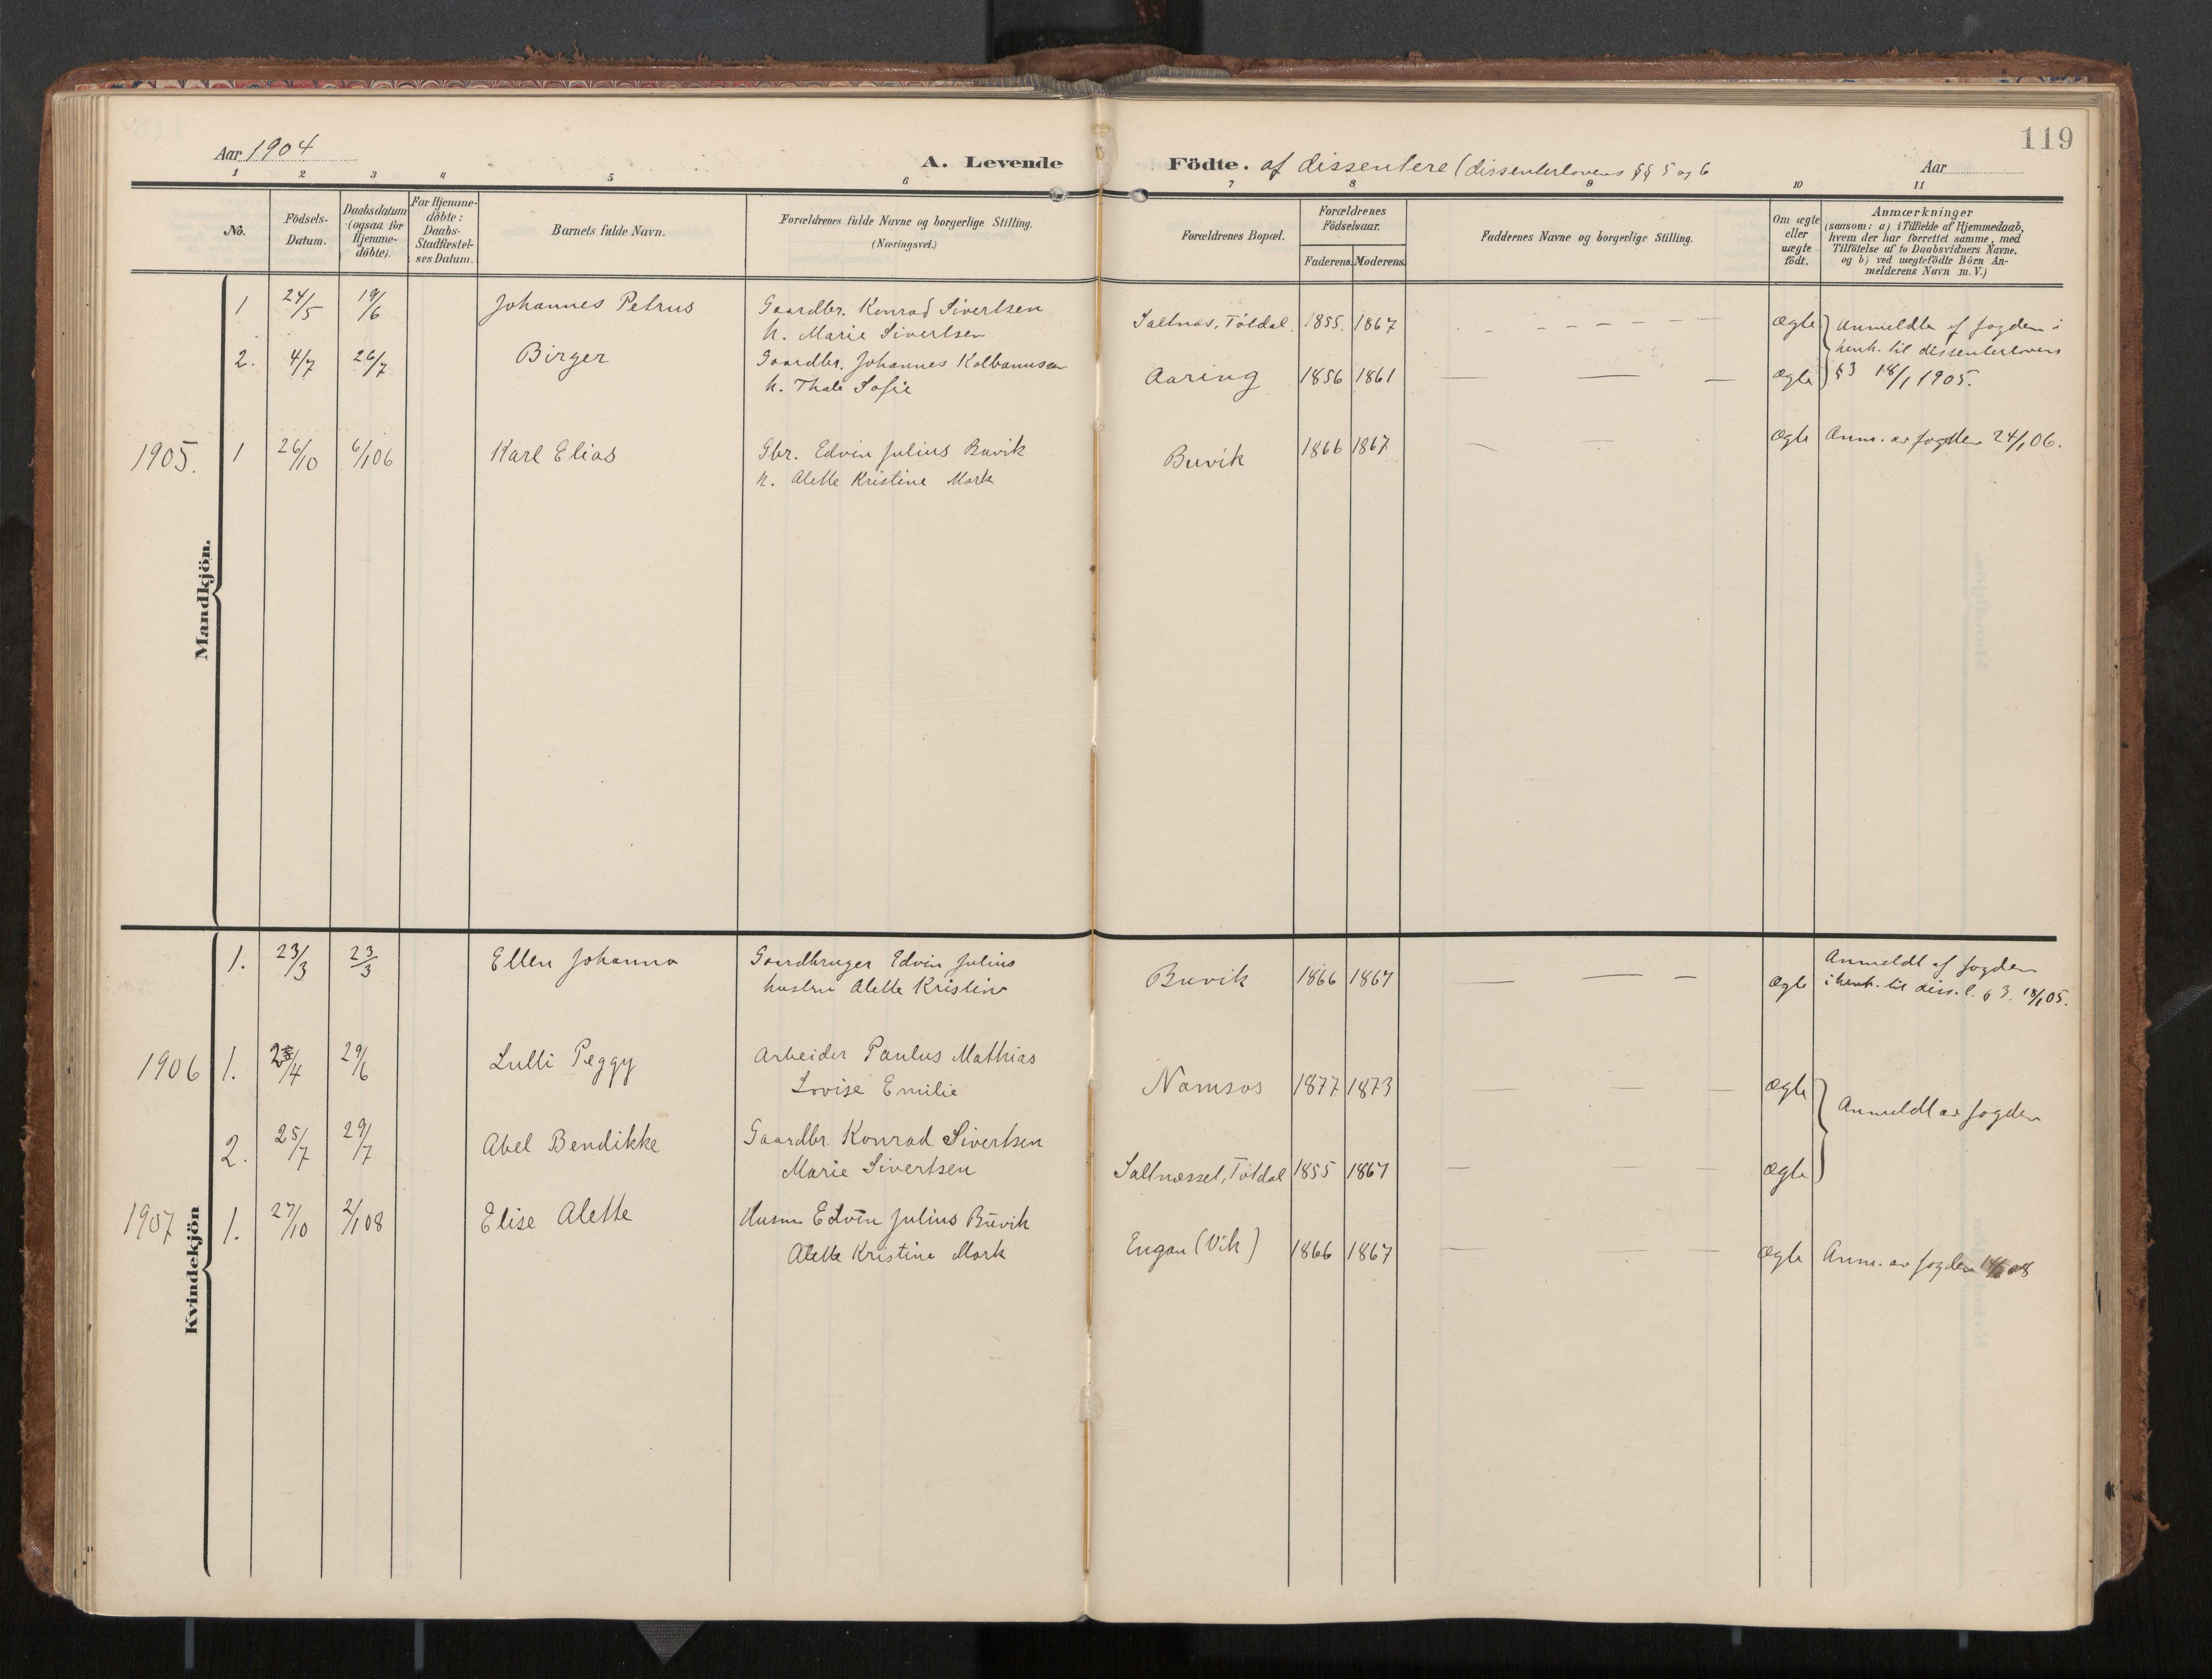 119
Aar 1904
A. Levende Födte. af dissentere (dissenterlovens §§ 5 og 6
Aar
1 2 3 4 5 6 7 8 9 10 11
No.
Födsels-
Datum.
Daabsdatum
(ogsaa for
Hjemme-
döbte).
For Hjemme-
döbte:
Daabs-
Stadfæstel-
ses Datum.
Barnets fulde Navn.
Forældrenes fulde Navne og borgerlige Stilling.
(Næringsvei.)
Forældrenes Bopæl.
Forældrenes
Födselsaar.
Faderens. Moderens.
Faddernes Navne og borgerlige Stilling.
Om ægte
eller
uægte
födt.
Anmærkninger
(saasom: a) i Tilfælde af Hjemmedaab,
hvem der har forrettet samme, med
Tilföielse af to Daabsvidners Navne,
og b) ved uægtefödte Börn An-
melderens Navn m. V.)
Mandkjön.
1 24/5 19/6 Johannes Petrus Gaardbr. Konrad Sivertsen
h. Marie Sivertsen
Saltnæs, Tötdal. 1855. 1867 Ægte
2. 4/7 26/7 Birger Gaardbr. Johannes Kolbanussen
h. Thale Sofie
Aaring 1856 1861 Ægte
Anmeldte af fogden i
henh. til dissenterlovens
§3 18/1 1905.
1905. 1 26/10 6/1 06 Karl Elias Gbr. Edvin Julius Buvik
h. Alette Kristine Mork
Buvik 1866 1867 Ægte Anm. av fogden 24/1 06.
Kvindekjön
1. 23/3 23/3 Ellen Johanna Gaardbruger Edvin Julius
hustru Alette Kristine
Buvik 1866 1867 Ægte
Anmeldt af fogden
i henh. til diss. l. § 3. 18/1 05.
1906 1. /4 29/6 Lulli Peggy Arbeider Paulus Mathias
Lovise Emilie
Namsos 1877 1873 Ægte
2. 25/7 29/7 Abel Bendikke Gaardbr. Konrad Sivertsen
Marie Sivertsen
Saltnæsset, Tötdal 1855 1867 Ægte
Anmeldt av fogden
1907 1. 27/10 2/1 08 Elise Alette Husm Edvin Julius Buvik
Alette Kristine Mork
Engan (Vik) 1866 1867 Ægte Anm. av fogden 08